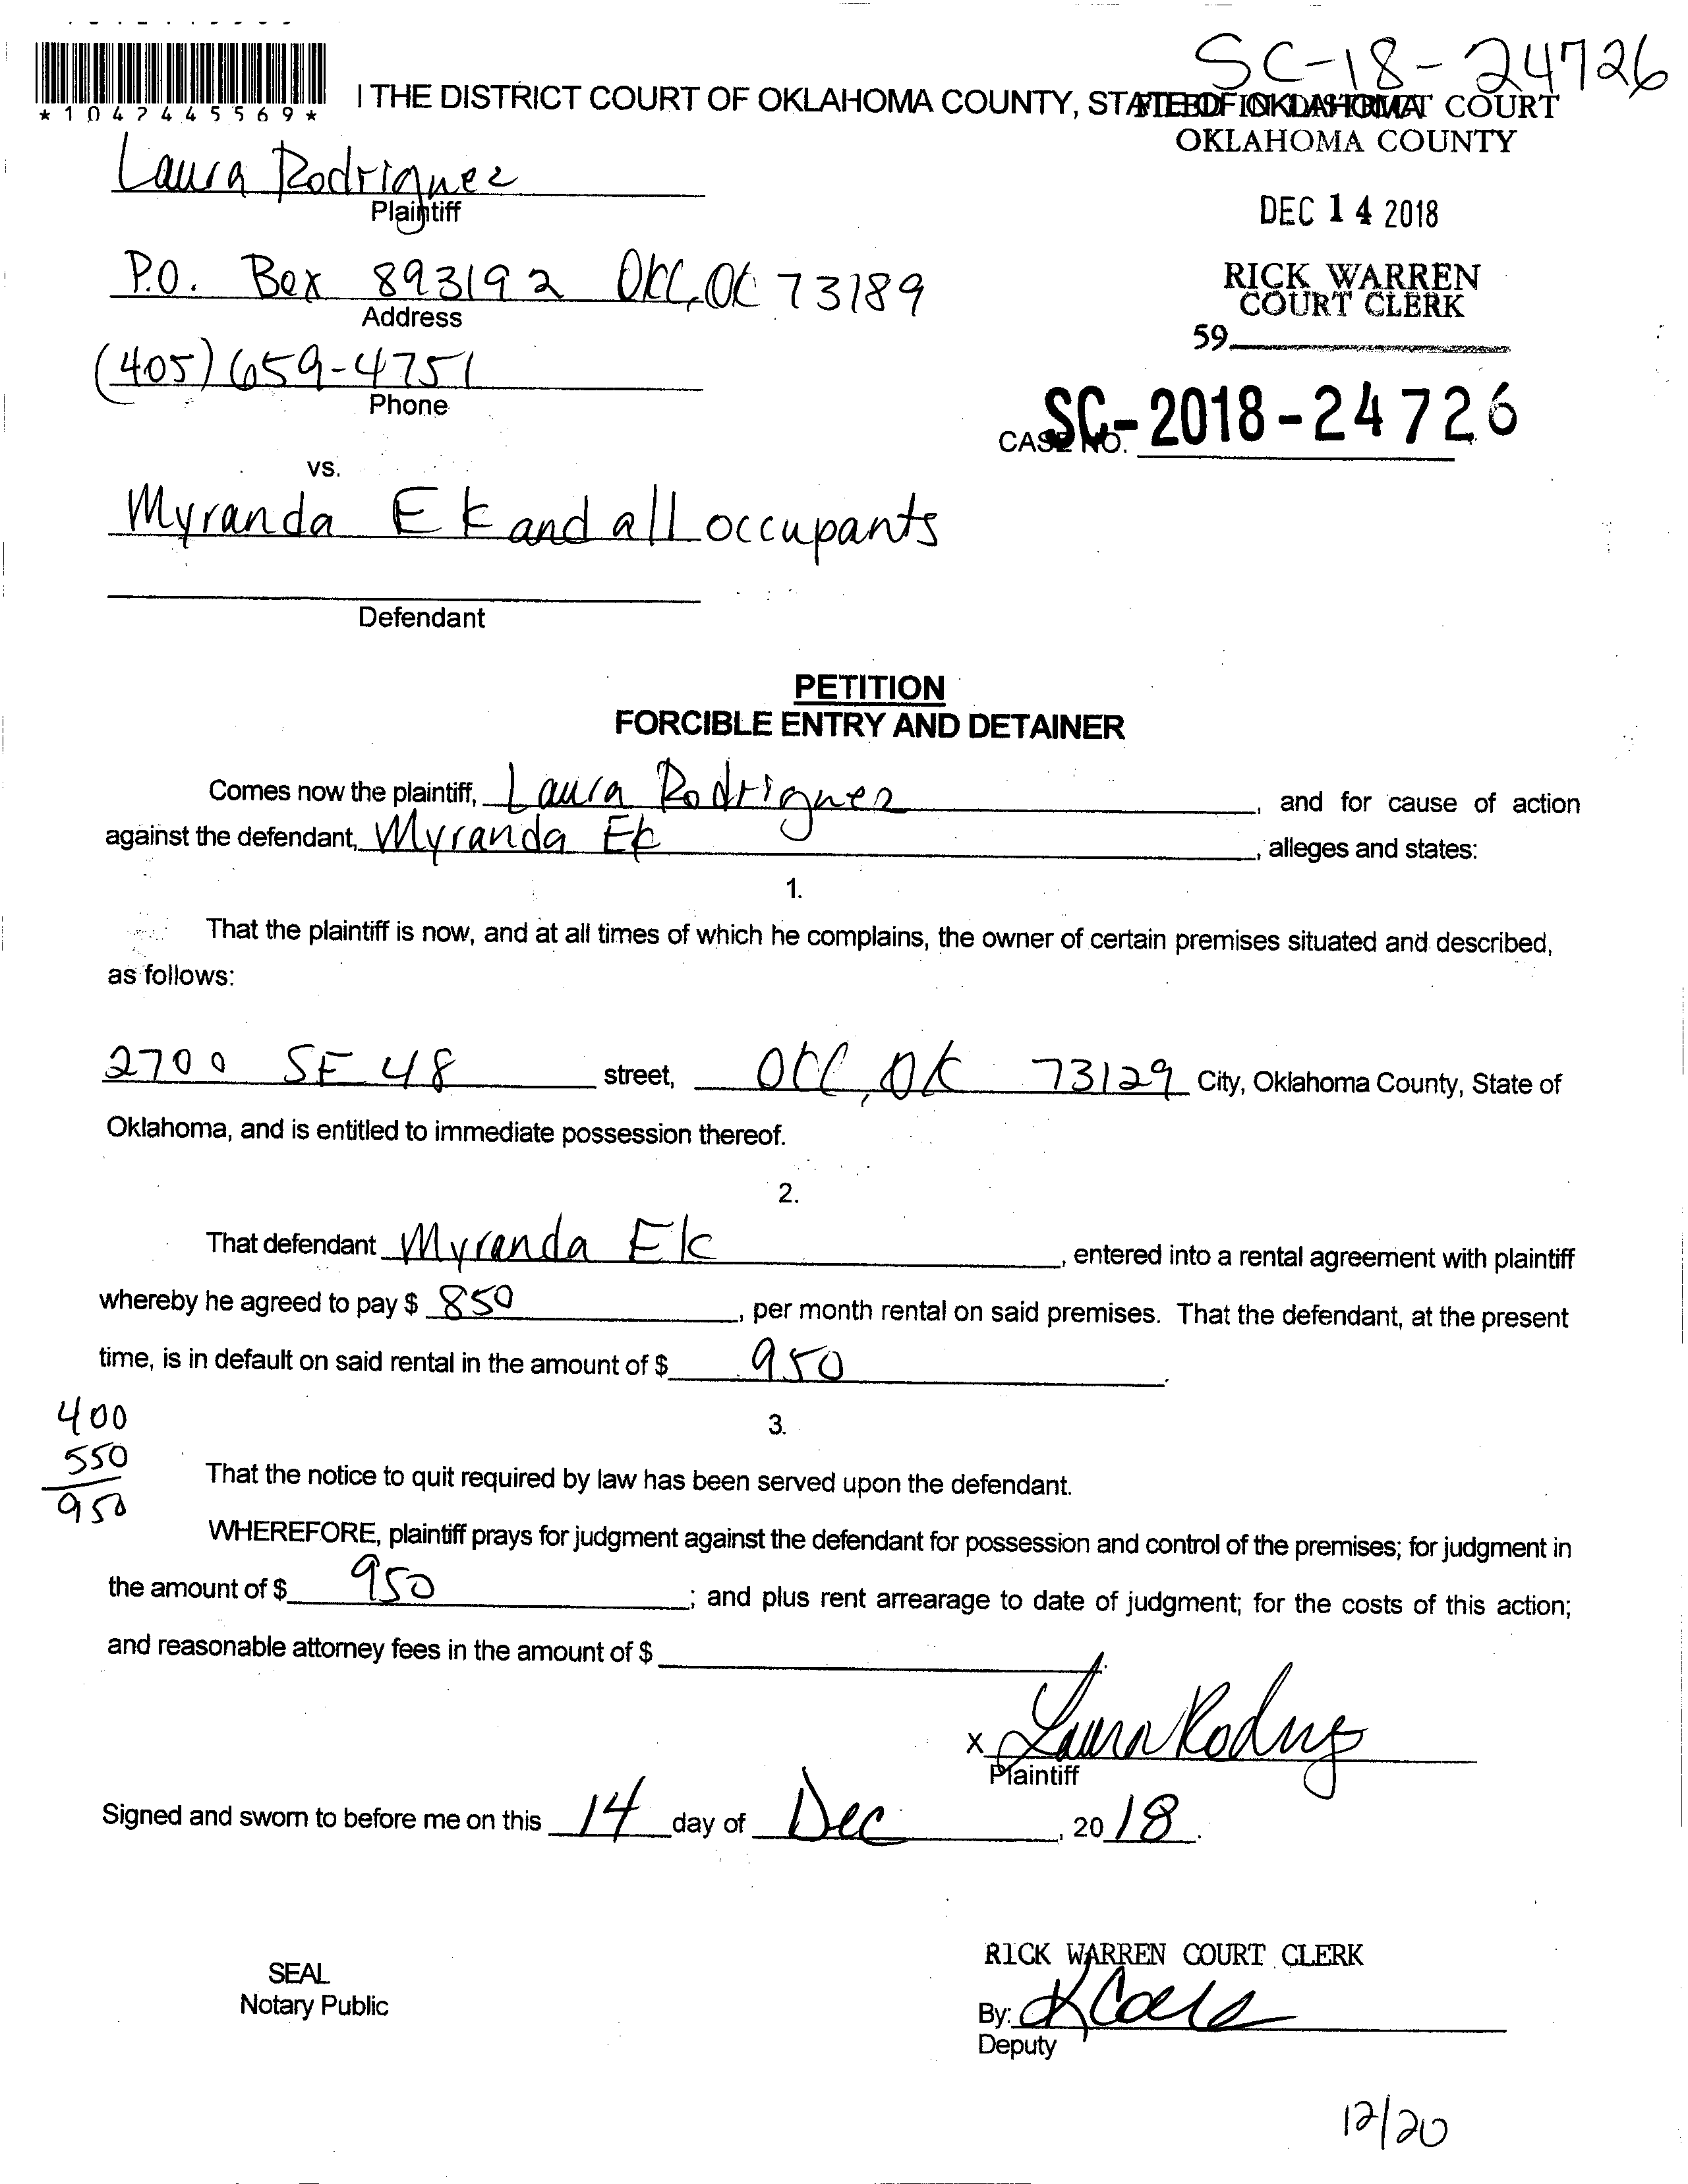 SC-18-24726
*1042445569*
I THE DISTRICT COURT OF OKLAHOMA COUNTY, STATE OF OKLAHOMA
FILED IN DISTRICT COURT
OKLAHOMA COUNTY
Laura Rodriguez
Plaintiff
DEC 14 2018
P.O. Box 893192 OKC, OK 73189
Address
RICK WARREN
COURT CLERK
59
(405) 659-4751
Phone
CASE NO. SC-2018-24726
vs.
Myranda Ek and all occupants
Defendant
PETITION
FORCIBLE ENTRY AND DETAINER
Comes now the plaintiff, Laura Rodriguez, and for cause of action
against the defendant, Myranda Ek, alleges and states:
1.
That the plaintiff is now, and at all times of which he complains, the owner of certain premises situated and described,
as follows:
2700 SE 48 street, OKC, OK 73129 City, Oklahoma County, State of
Oklahoma, and is entitled to immediate possession thereof.
2.
That defendant Myranda Ek, entered into a rental agreement with plaintiff
whereby he agreed to pay $ 850, per month rental on said premises. That the defendant, at the present
time, is in default on said rental in the amount of $ 950.
400
550
950
3.
That the notice to quit required by law has been served upon the defendant.
WHEREFORE, plaintiff prays for judgment against the defendant for possession and control of the premises; for judgment in
the amount of $ 950; and plus rent arrearage to date of judgment; for the costs of this action;
and reasonable attorney fees in the amount of $
x Laura Rodrig
Plaintiff
Signed and sworn to before me on this 14 day of Dec, 2018.
SEAL
Notary Public
RICK WARREN COURT CLERK
By:
Deputy
12/20